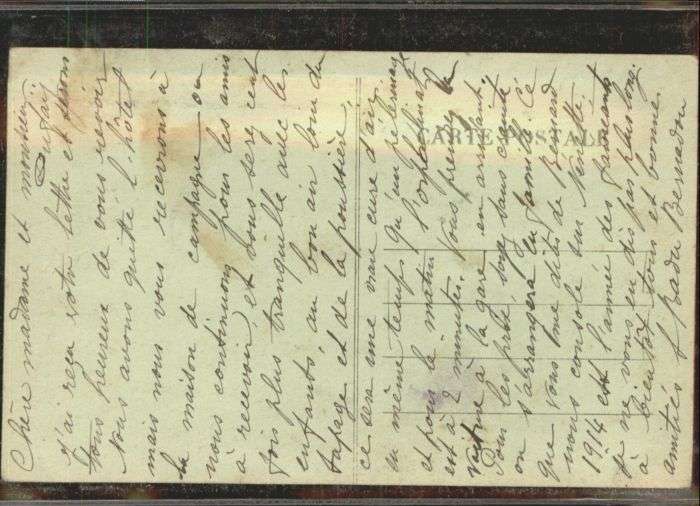 Chère madame et monsieur
J'ai reçu votre lettre et serons
tous heureux de vous revoir
Nous avons quitté l'hôtel
mais nous vous recevrons à
la maison de campagne ou
nous continuons pour les amis
à recevoir, et vous serez cent
fois plus tranquille avec les
enfants, au bon air loin du
tapage et de la poussière.
ce sera une vraie cure d'air,
en même temps qu'un
et pour le matin l'orphelinat
est à 2 minutes. Vous prenez la
voiture à la gare en arrivant,
Pour les prix, soyez sans crainte
on s'arrangera en famille. Ce
que vous me dites de Bernard
nous console sur Ninette.
1914 est l'année des
je ne vous en dis pas plus long.
à bientôt tous et bonne
amitiés
CARTE POSTALE